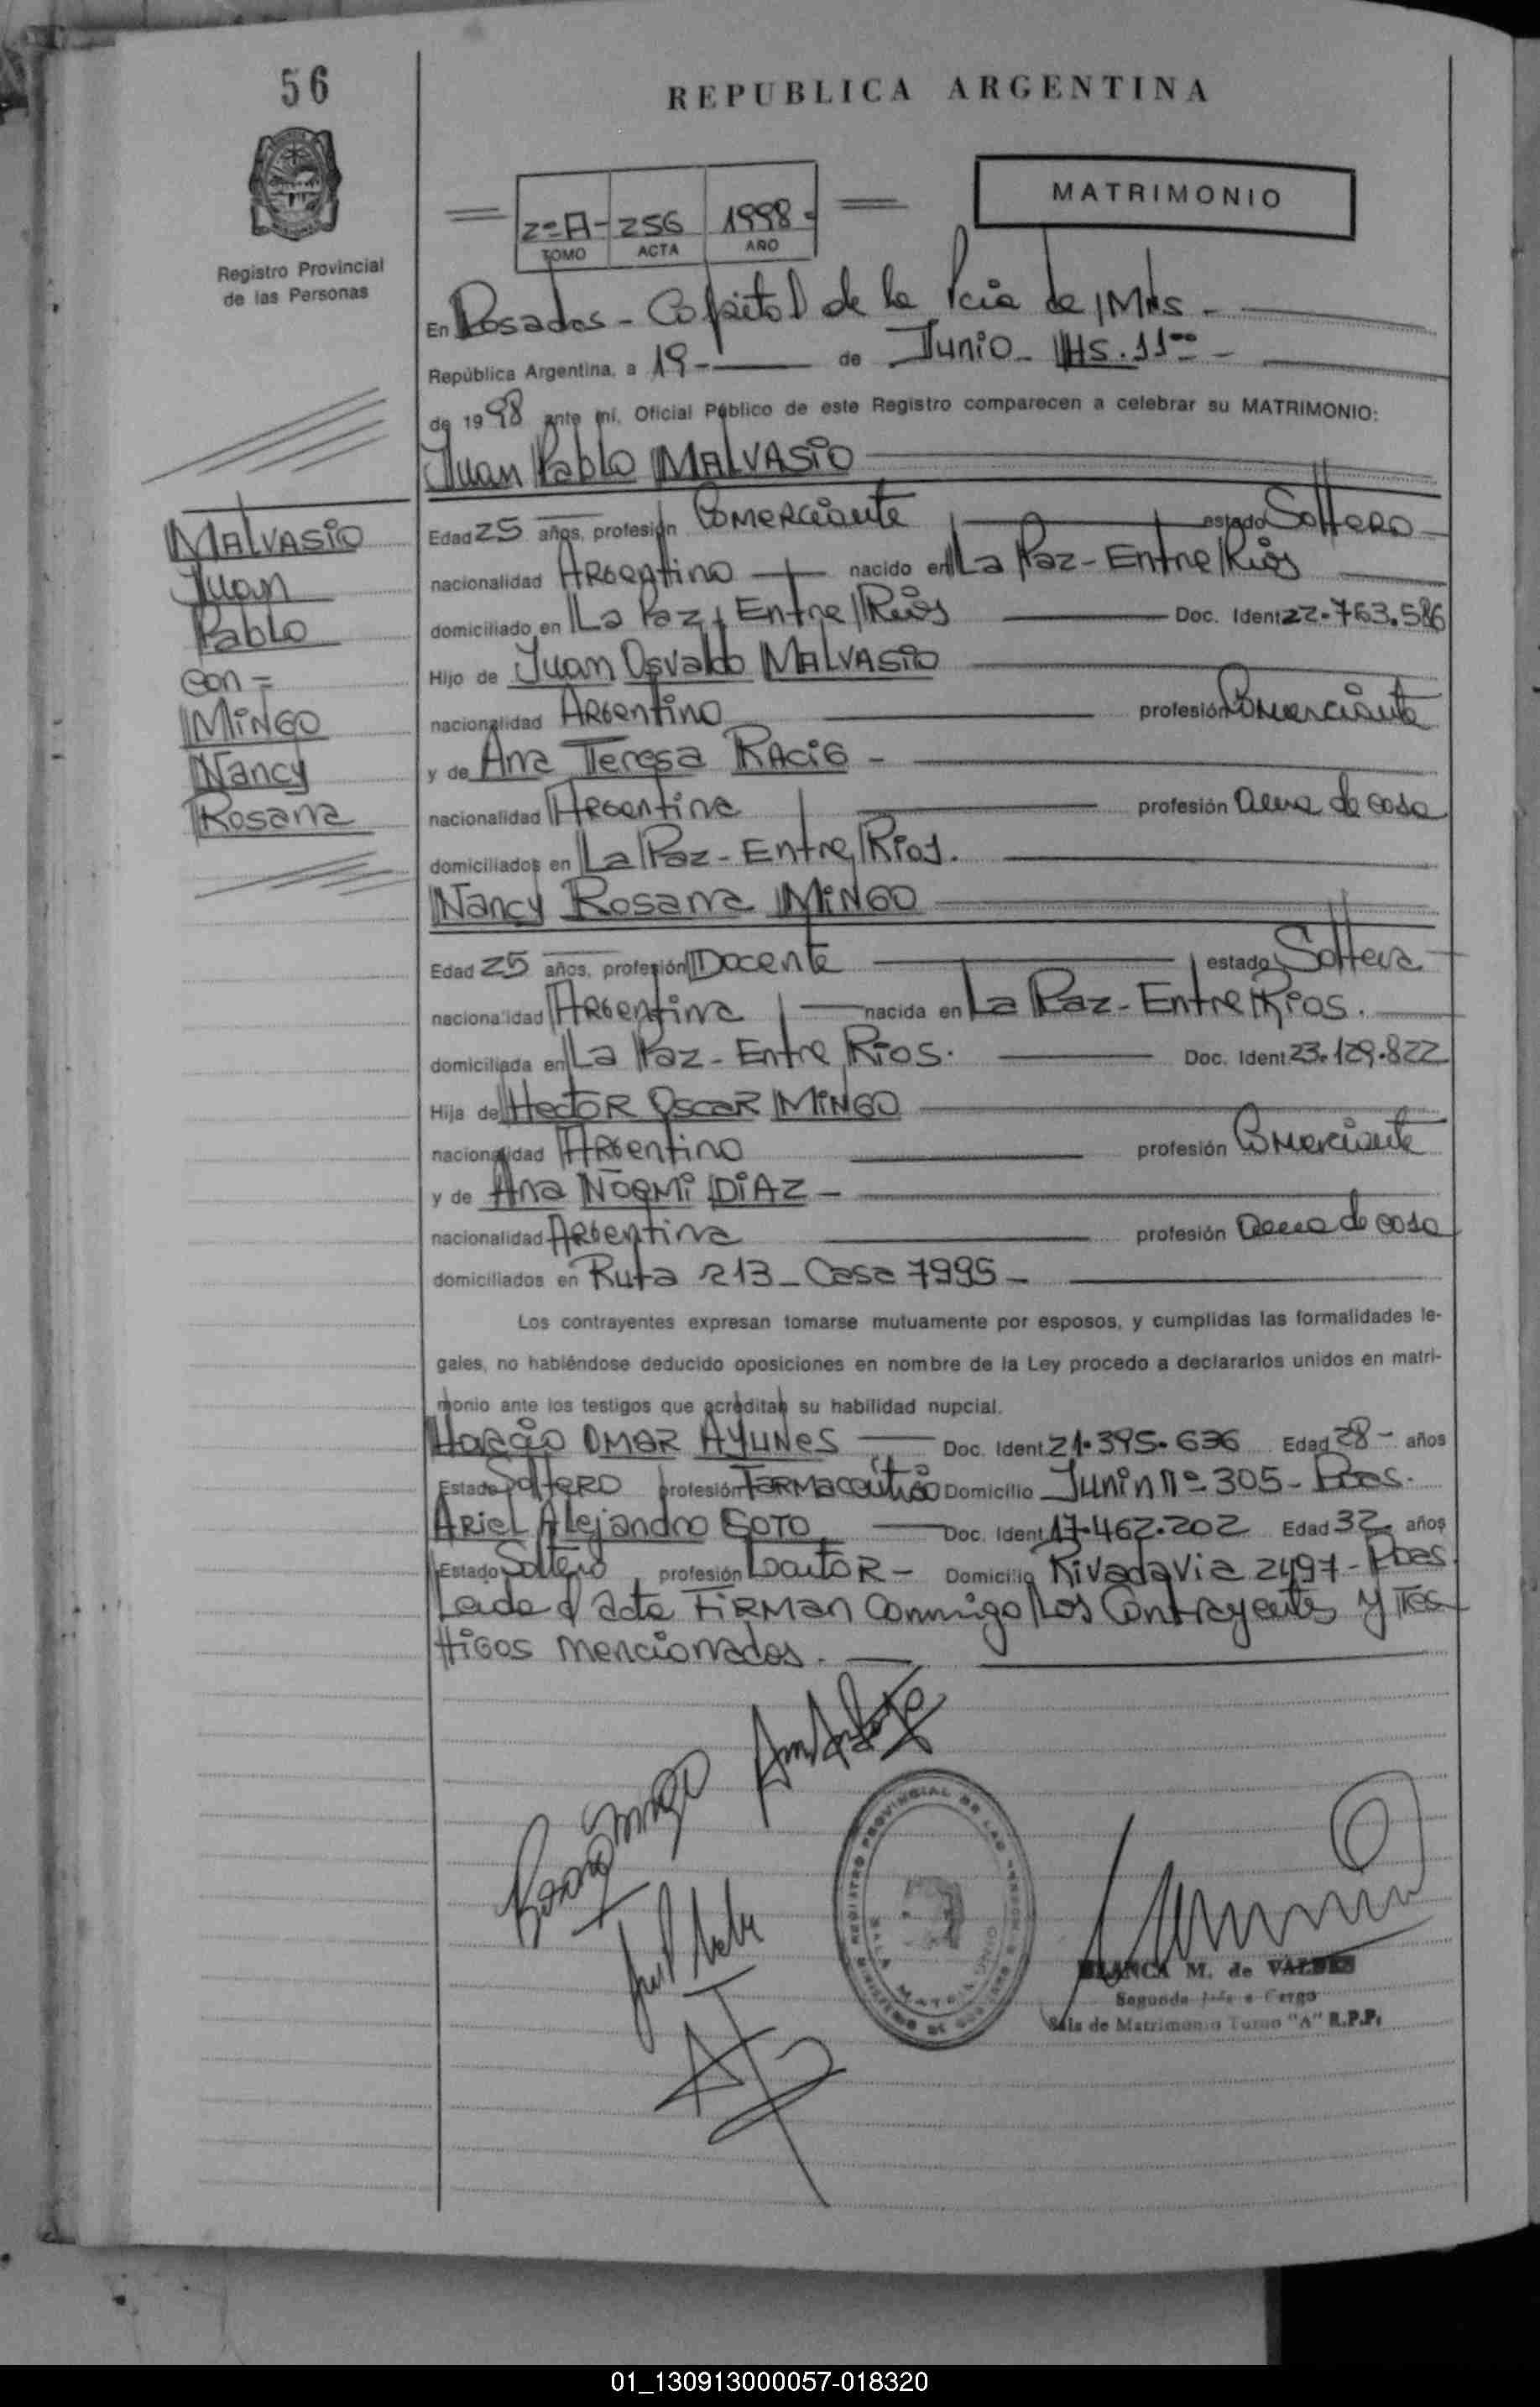 56
REPUBLICA ARGENTINA
Registro Provincial
de las Personas
2=A- 256 1998-
TOMO ACTA AÑO
MATRIMONIO
En Posadas - Capital de la Pcia de Mnes -
República Argentina, a 19- de Junio - HS. 11oo -
de 1998 ante mí, Oficial Público de este Registro comparecen a celebrar su MATRIMONIO:
Juan Pablo MALVASIO
MALVASIO
Juan
Pablo
con =
MINGO
Nancy
Rosana
Edad 25 años, profesión Comerciante estado Soltero
nacionalidad Argentino nacido en La Paz - Entre Rios
domiciliado en La Paz, Entre Rios Doc. Ident 22.763.586
Hijo de Juan Osvaldo MALVASIO
nacionalidad Argentino profesión Comerciante
y de Ana Teresa RACIG -
nacionalidad Argentina profesión ama de casa
domiciliados en La Paz - Entre Rios.
Nancy Rosana MINGO
Edad 25 años, profesión Docente estado Soltera
nacionalidad Argentina nacida en La Paz - Entre Rios.
domiciliada en La Paz - Entre Rios. Doc. Ident 23.129.822
Hija de Hector Oscar MINGO
nacionalidad Argentino profesión Comerciante
y de Ana Noemi DIAZ -
nacionalidad Argentina profesión ama de casa
domiciliados en Ruta 213 - Casa 7995 -
Los contrayentes expresan tomarse mutuamente por esposos, y cumplidas las formalidades le-
gales, no habiéndose deducido oposiciones en nombre de la Ley procedo a declararlos unidos en matri-
monio ante los testigos que acreditan su habilidad nupcial.
Horacio OMAR AYUNES Doc. Ident 21.395.636 Edad 28 - años
Estado Soltero profesión Farmacéutico Domicilio Junin nº 305 - Pdas.
Ariel Alejandro SOTO Doc. Ident 17.462.202 Edad 32 años
Estado Soltero profesión Locutor - Domicilio Rivadavia 2497 - Pdas.
Leida el acta Firman conmigo los Contrayentes y Tes
tigos mencionados.
REGISTRO PROVINCIAL DE LAS PERSONAS
BLANCA M. de VALDES
Segunda Jefe a Cargo
Sala de Matrimonio Turno "A" R.P.P.
01_130913000057-018320